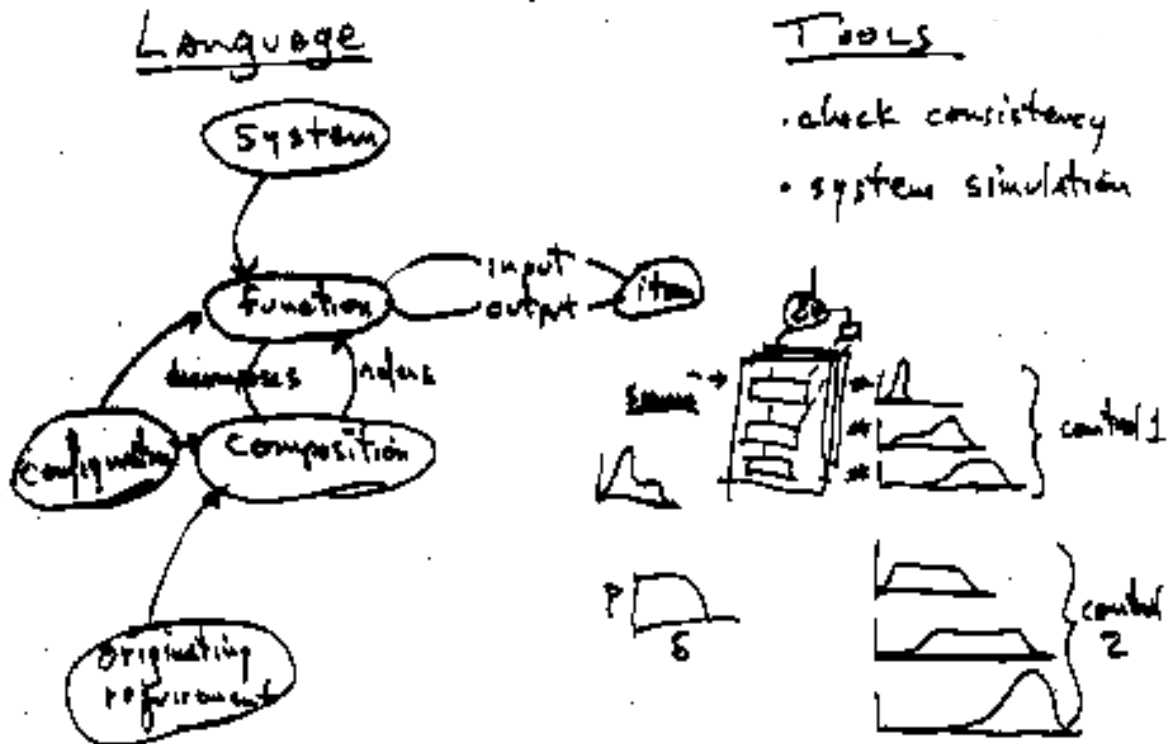 Language
System
Function
input
output
item
decomposes
refers
Composition
originating
requirement
Tools
• check consistency
• system simulation
control 1
P
control
2